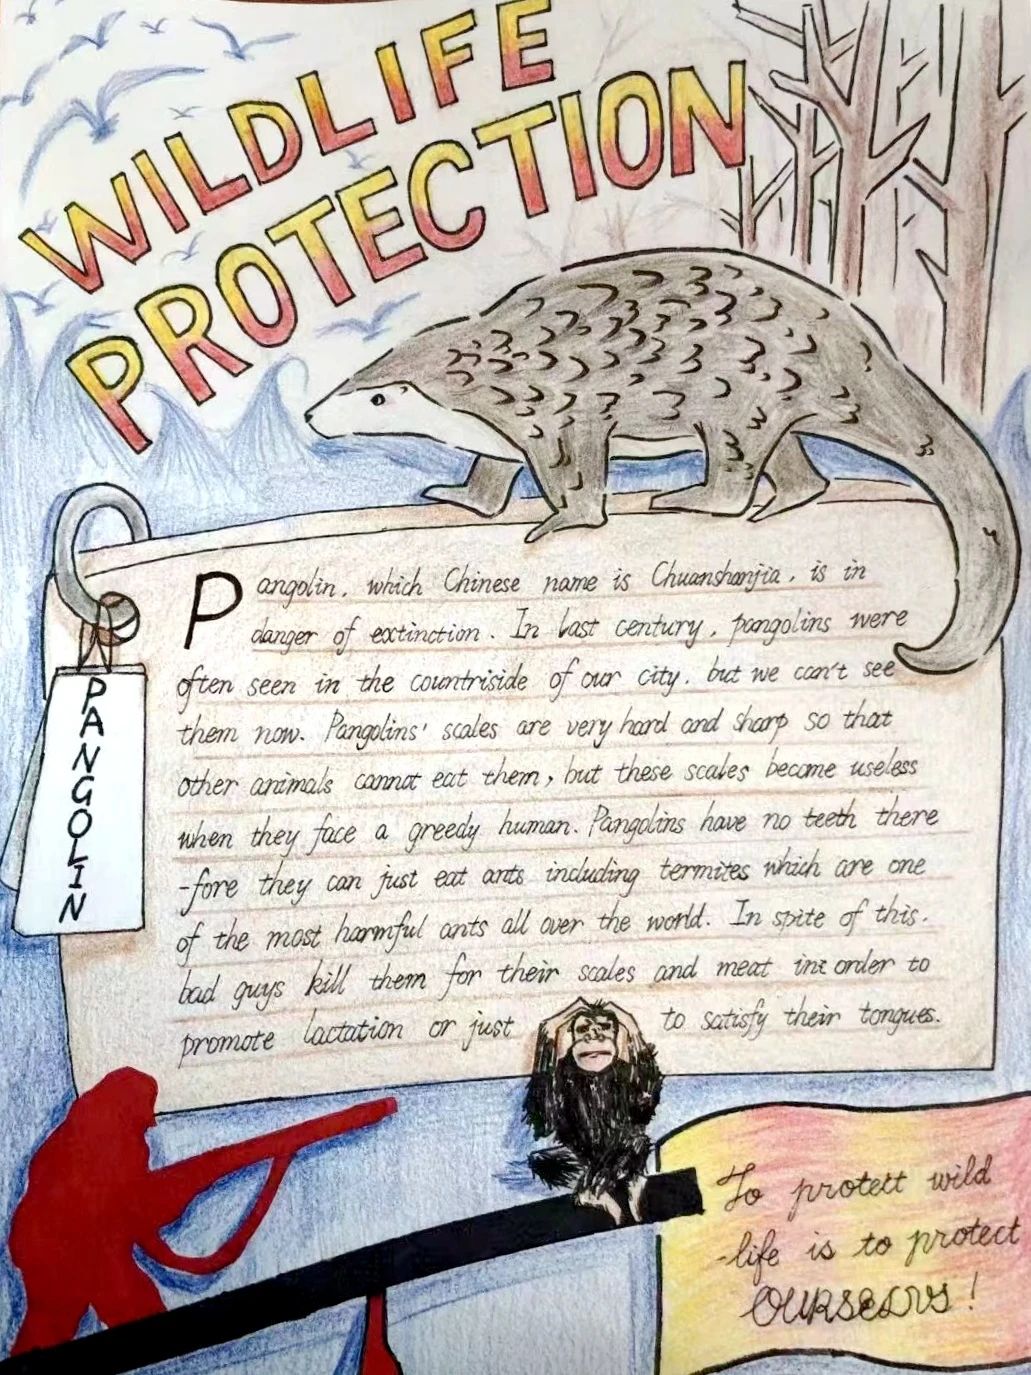 WILDLIFE
PROTECTION
Pangolin, which Chinese name is Chuanshanjia, is in
danger of extinction. In last century, pangolins were
often seen in the countriside of our city, but we can't see
them now. Pangolins' scales are very hard and sharp so that
other animals cannot eat them, but these scales become useless
when they face a greedy human. Pangolins have no teeth there
-fore they can just eat ants including termites which are one
of the most harmful ants all over the world. In spite of this,
bad guys kill them for their scales and meat in order to
promote lactation or just to satisfy their tongues.
PANGOLIN
To protett wild
-life is to protect
!